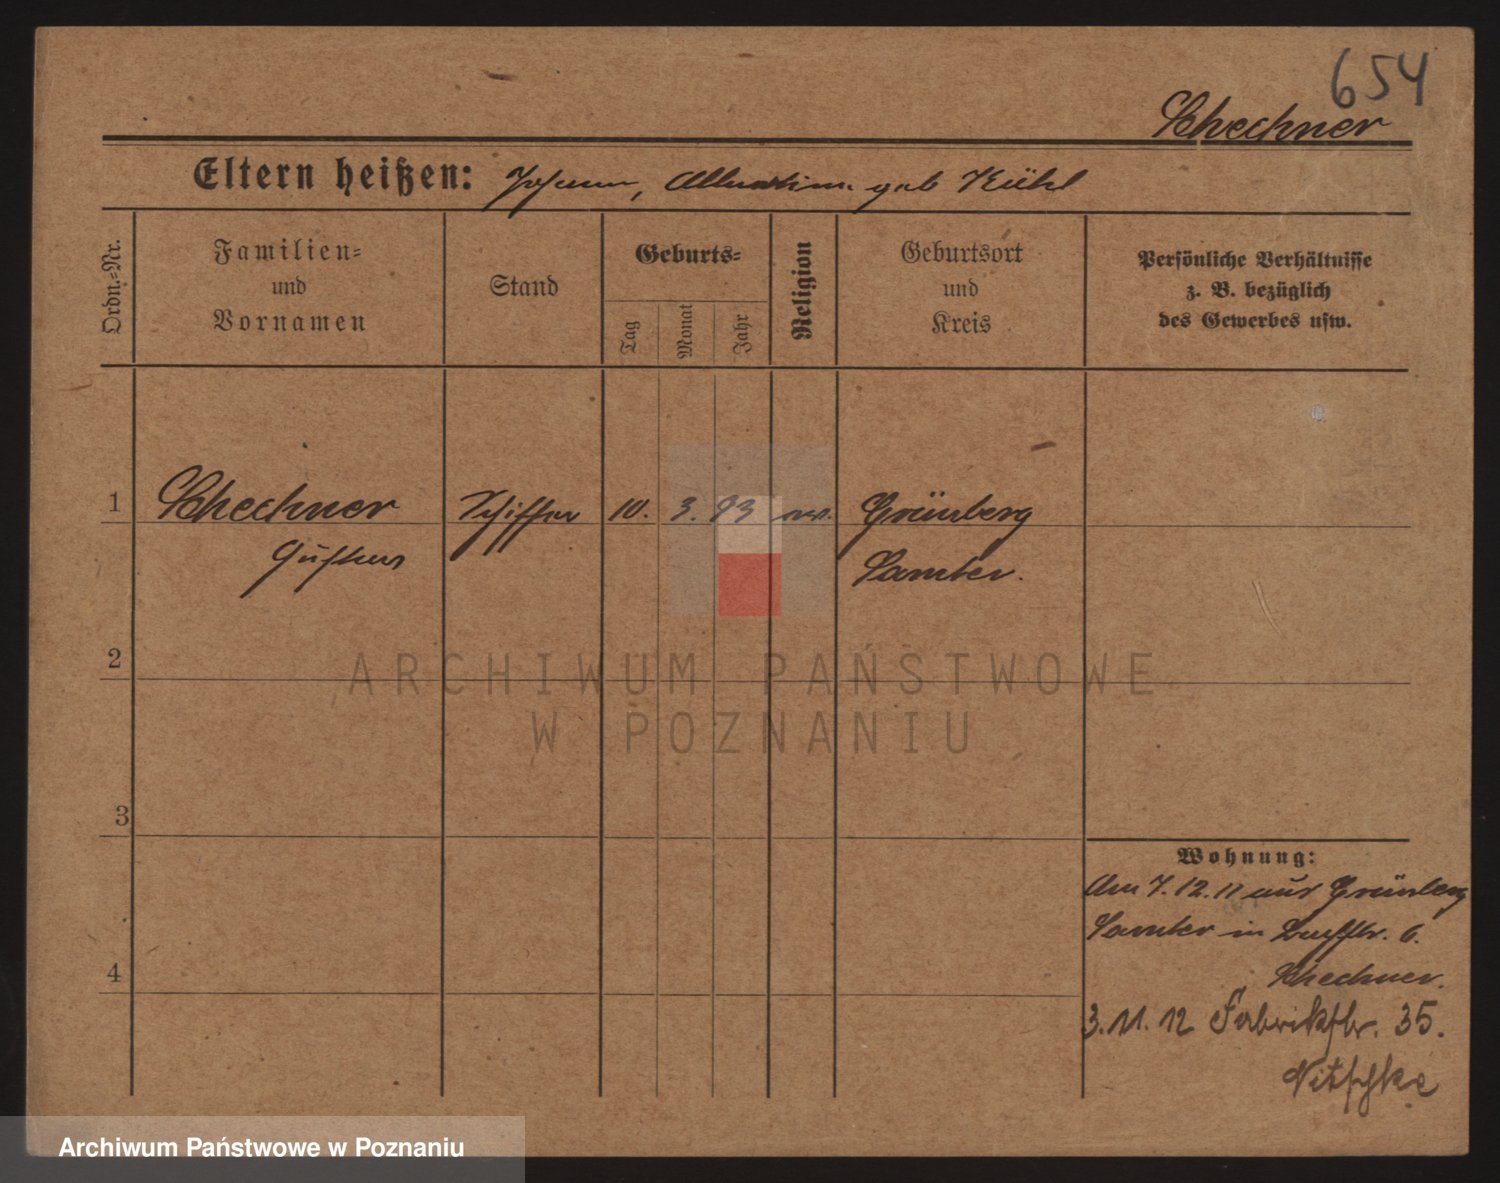 654
Schechner
Eltern heißen: Johann, geb Kühl
Ordn.-Nr.
Familien-
und
Vornamen
Stand
Geburts-
Tag
Monat
Jahr
Religion
Geburtsort
und
Kreis
Persönliche Verhältnisse
z. B. bezüglich
des Gewerbes usw.
1 Schechner Schiffer 10. 3. 93 Grünberg
Gustav Samter.
2
ARCHIWUM PAŃSTWOWE
W POZNANIU
3
Wohnung:
Am 7.12.11 aus Grünberg
Samter in 6.
4
Schechner.
3.11.12 Fabrikstr. 35.
Nitschke
Archiwum Państwowe w Poznaniu